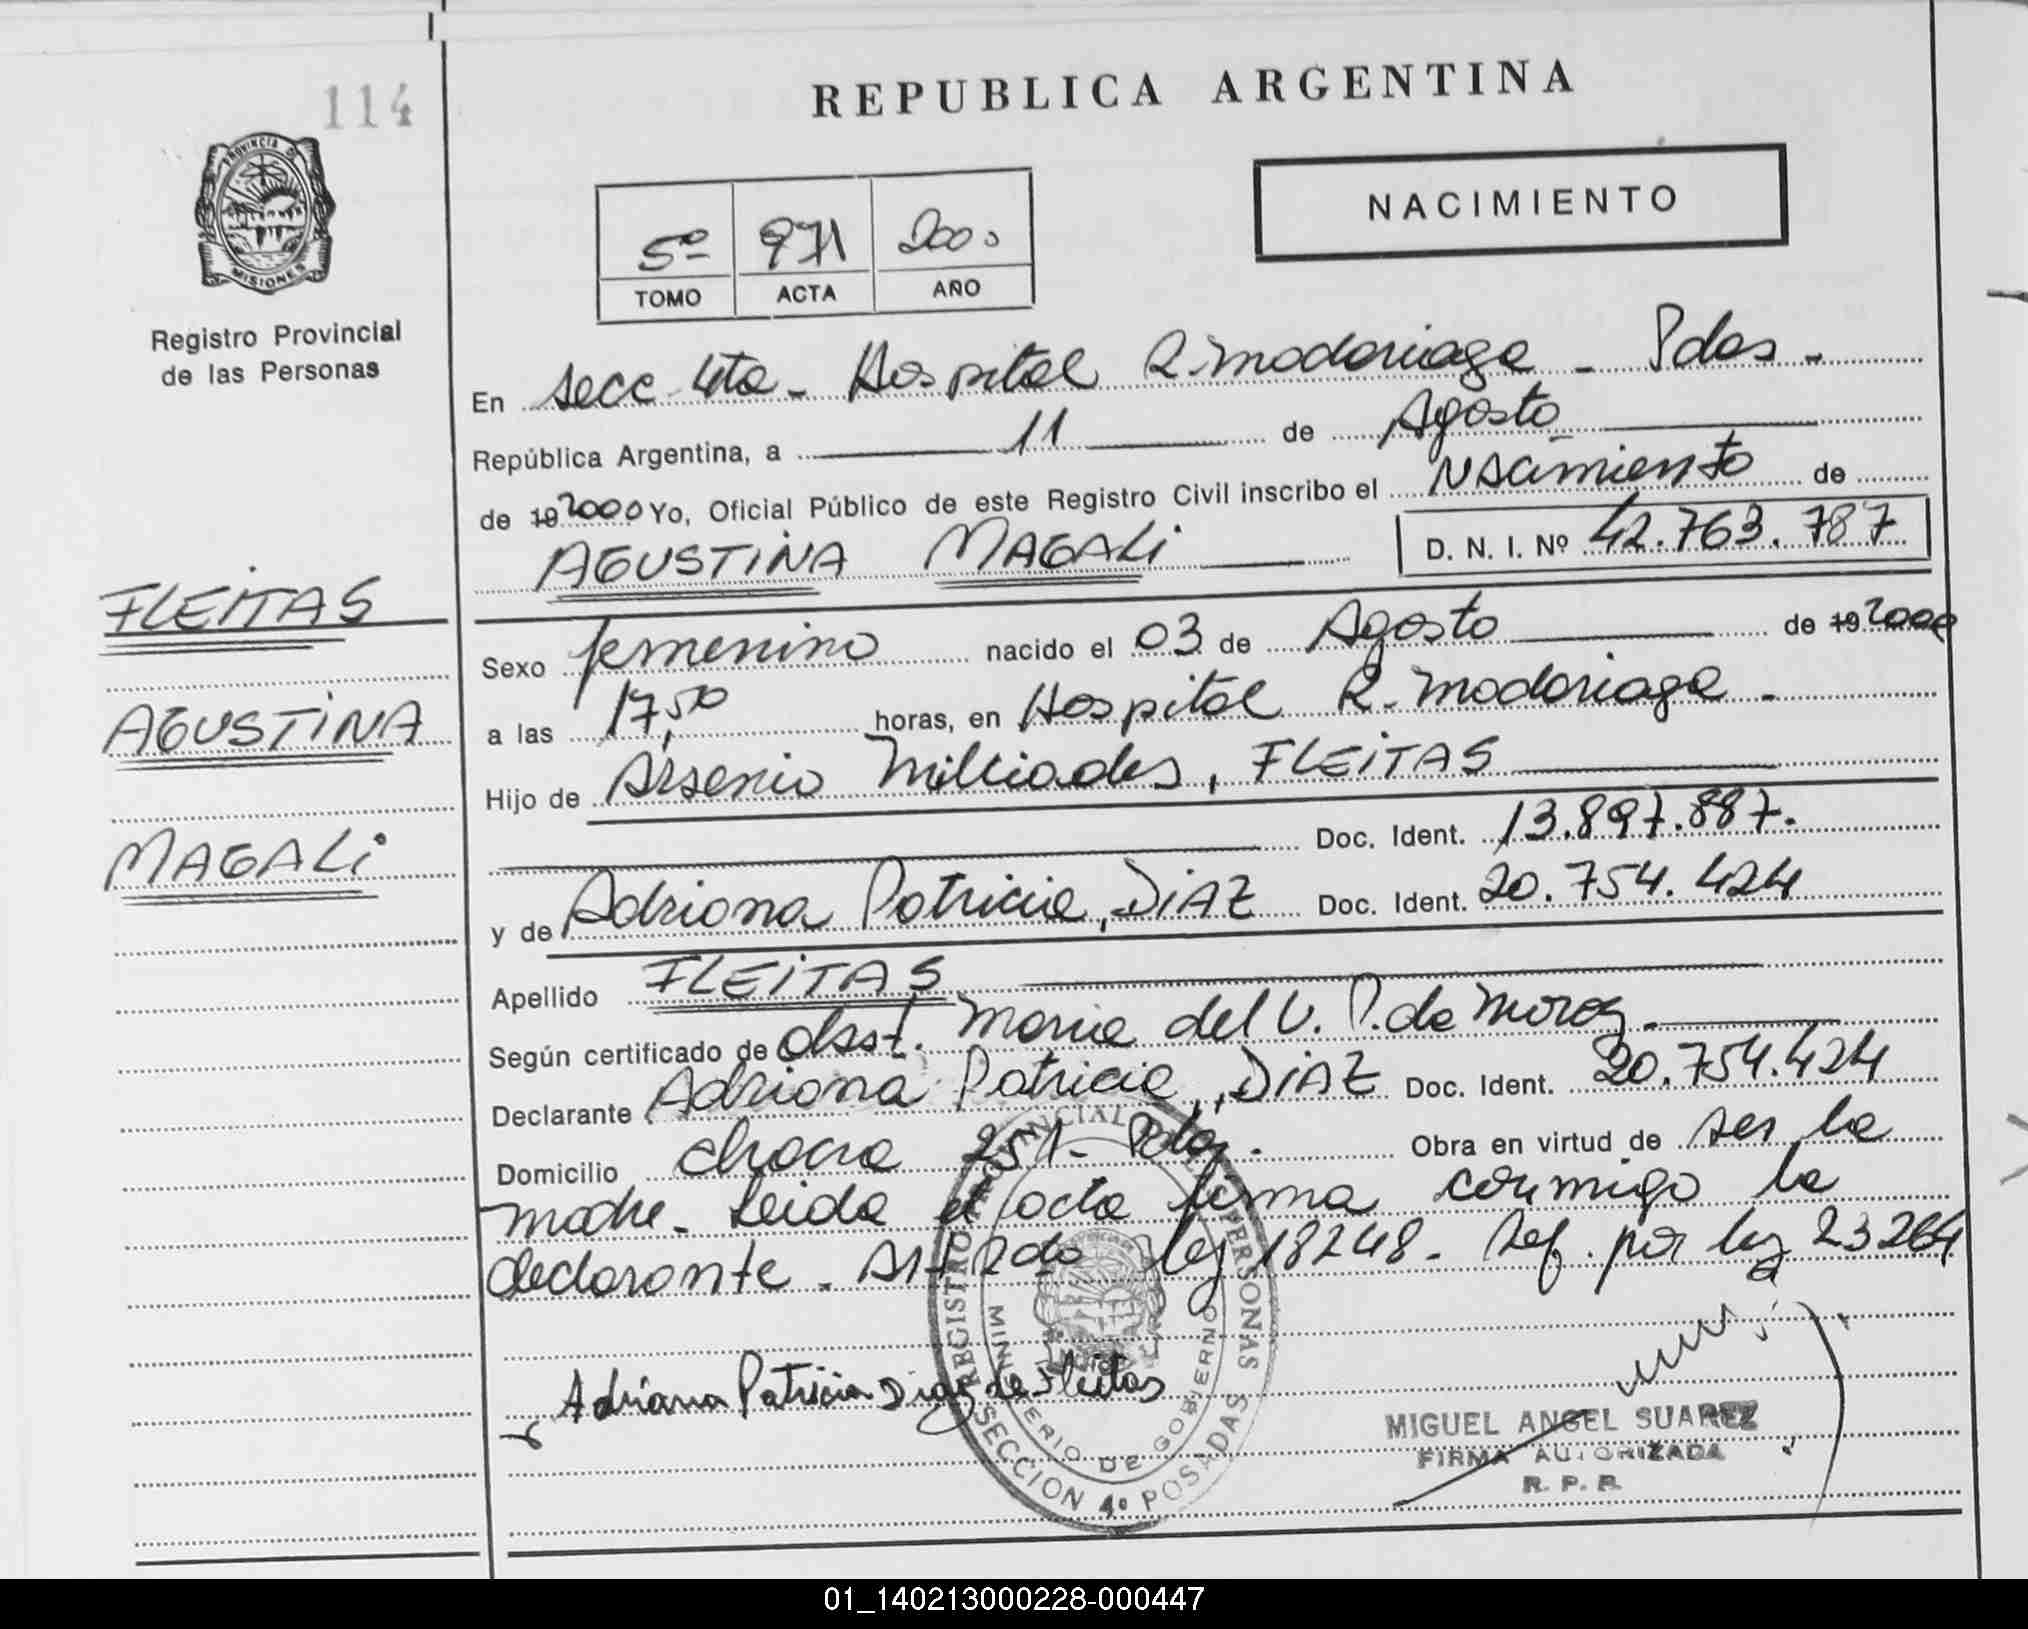 114
REPUBLICA ARGENTINA
PROVINCIA DE MISIONES
Registro Provincial
de las Personas
5º 971 2000
TOMO ACTA AÑO
NACIMIENTO
En Secc 4ta - Hospital R. Madariaga - Pdas -
República Argentina, a 11 de Agosto
de 192000 Yo, Oficial Público de este Registro Civil inscribo el Nacimiento de
AGUSTINA MAGALI D. N. I. Nº 42.763.787
FLEITAS
AGUSTINA
MAGALI
Sexo femenino nacido el 03 de Agosto de 192000
a las 17,50 horas, en Hospital R. Madariaga -
Hijo de Arsenio Milciades, FLEITAS
Doc. Ident. 13.897.887.
y de Adriana Patricia, DIAZ Doc. Ident. 20.754.424
Apellido FLEITAS
Según certificado de Obst. Maria del V. P. de
Declarante Adriana Patricia, DIAZ Doc. Ident. 20.754.424
Domicilio chacra 251 - Pdas. Obra en virtud de ser la
madre - Leida el acta firma conmigo la
declarante - Art 2do ley 18248 - Ref. por ley 23264
Adriana Patricia Diaz de Fleitas
REGISTRO PROVINCIAL DE LAS PERSONAS
MINISTERIO DE GOBIERNO
SECCION 4º POSADAS
MIGUEL ANGEL SUAREZ
FIRMA AUTORIZADA
R. P. P.
01_140213000228-000447